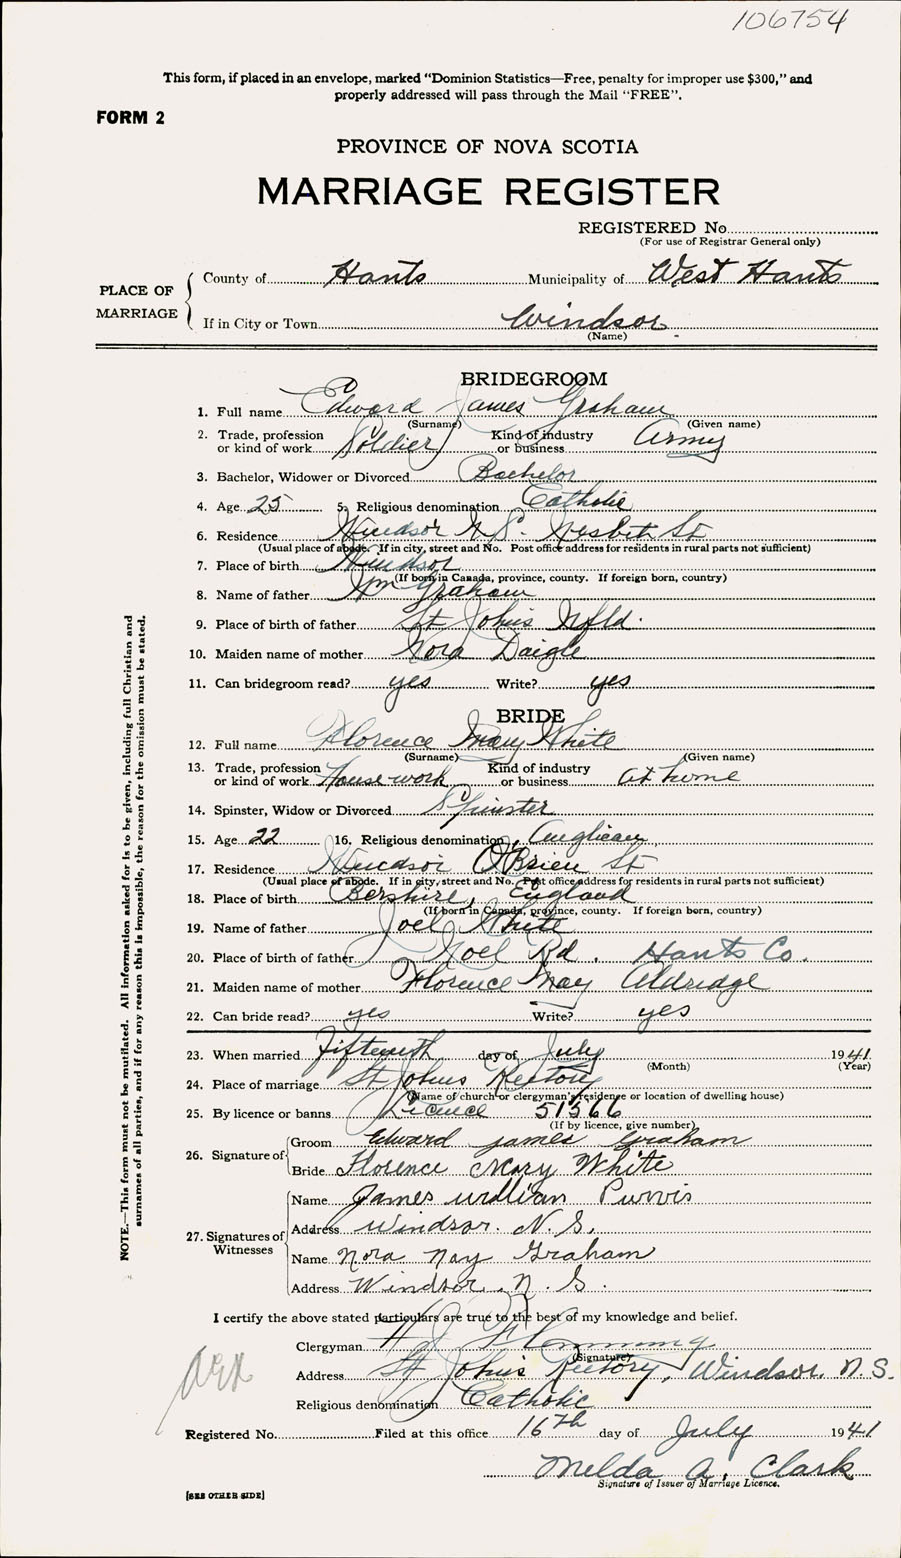 106754
This form, if placed in an envelope, marked “Dominion Statistics—Free, penalty for improper use $300,” and
properly addressed will pass through the Mail “FREE”.
FORM 2
PROVINCE OF NOVA SCOTIA
MARRIAGE REGISTER
REGISTERED No.
(For use of Registrar General only)
PLACE OF MARRIAGE
County of Hants Municipality of West Hants
If in City or Town Windsor
(Name)
BRIDEGROOM
1. Full name Edward James Graham
(Surname) (Given name)
2. Trade, profession or kind of work Soldier Kind of industry or business Army
3. Bachelor, Widower or Divorced Bachelor
4. Age 25 5. Religious denomination Catholic
6. Residence Windsor N.S. Nesbit St
(Usual place of abode. If in city, street and No. Post office address for residents in rural parts not sufficient)
7. Place of birth Windsor
(If born in Canada, province, county. If foreign born, country)
8. Name of father Wm Graham
9. Place of birth of father St Johns Nfld.
10. Maiden name of mother Nora Daigle
11. Can bridegroom read? yes Write? yes
BRIDE
12. Full name Florence May White
(Surname) (Given name)
13. Trade, profession or kind of work House work Kind of industry or business at home
14. Spinster, Widow or Divorced Spinster
15. Age 22 16. Religious denomination Anglican
17. Residence Windsor O'Brien St
(Usual place of abode. If in city, street and No. Post office address for residents in rural parts not sufficient)
18. Place of birth Bershire, England
(If born in Canada, province, county. If foreign born, country)
19. Name of father Joel White
20. Place of birth of father Noel Rd. Hants Co.
21. Maiden name of mother Florence May Aldridge
22. Can bride read? yes Write? yes
23. When married fifteenth day of July 1941
(Month) (Year)
24. Place of marriage St Johns Rectory
(Name of church or clergyman's residence or location of dwelling house)
25. By licence or banns Licence 51366
(If by licence, give number)
26. Signature of
Groom Edward James Graham
Bride Florence Mary White
27. Signatures of Witnesses
Name James William Purvis
Address Windsor. N.S.
Name Nora May Graham
Address Windsor, N.S.
I certify the above stated particulars are true to the best of my knowledge and belief.
Clergyman
(Signature)
Address St Johns Rectory, Windsor. N.S.
Religious denomination Catholic
Registered No. Filed at this office 16th day of July 1941
Melda A. Clark
Signature of Issuer of Marriage Licence.
[SEE OTHER SIDE]
NOTE.—This form must not be mutilated. All information asked for is to be given, including full Christian and
surnames of all parties, and if for any reason this is impossible, the reason for the omission must be stated.